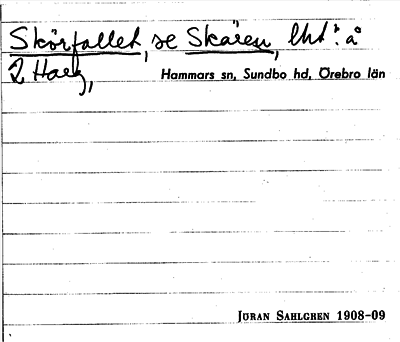 Skörfallet, se Skären, lht: å
2 Harg, Hammars sn, Sundbo hd, Örebro län
Jöran Sahlgren 1908-09